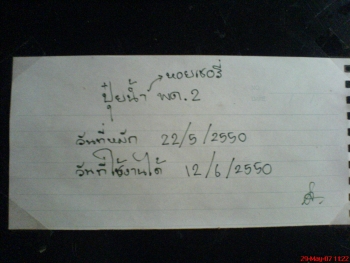 หอยเชอรี่
ปุ๋ยน้ำ พด.2
วันที่หมัก 22/5/2550
วันที่ใช้งานได้ 12/6/2550
29-May-07 11:22